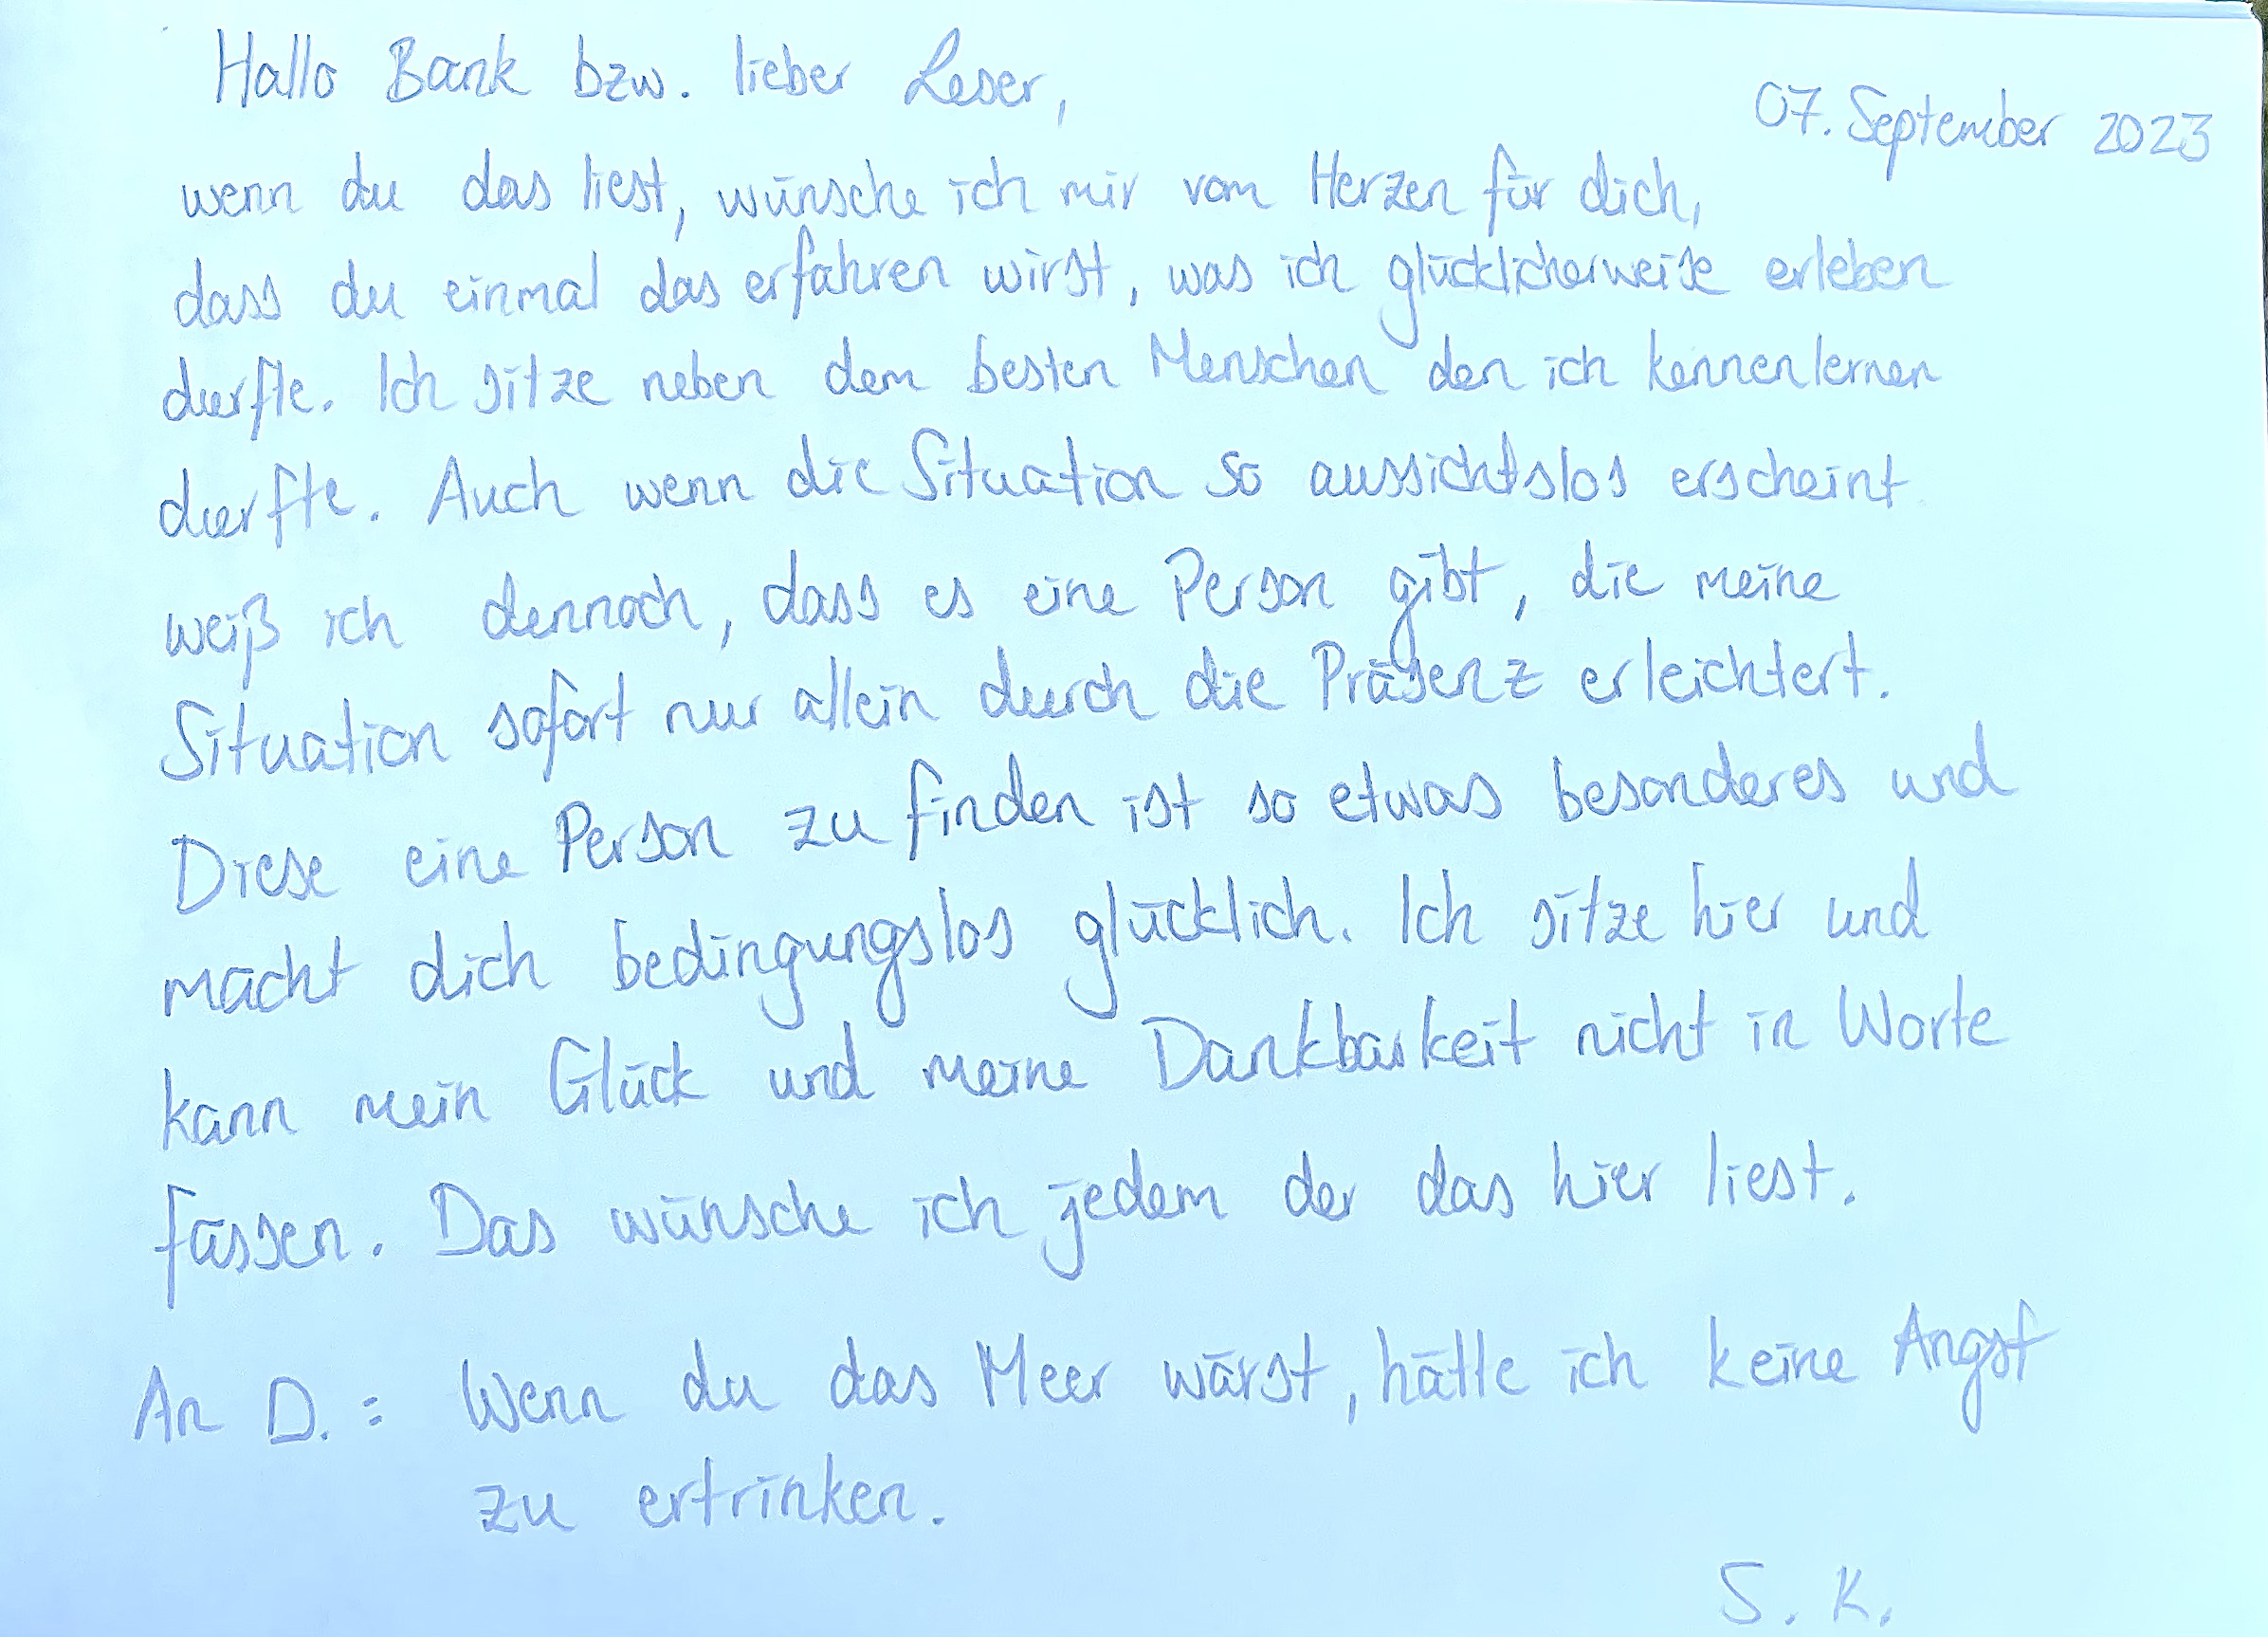 Hallo Bank bzw. lieber Leser,
07. September 2023
wenn du das liest, wünsche ich mir vom Herzen für dich,
dass du einmal das erfahren wirst, was ich glücklicherweise erleben
durfte. Ich sitze neben dem besten Menschen den ich kennenlernen
durfte. Auch wenn die Situation so aussichtslos erscheint
weiß ich dennoch, dass es eine Person gibt, die meine
Situation sofort nur allein durch die Präsenz erleichtert.
Diese eine Person zu finden ist so etwas besonderes und
macht dich bedingungslos glücklich. Ich sitze hier und
kann mein Glück und meine Dankbarkeit nicht in Worte
fassen. Das wünsche ich jedem der das hier liest.
An D.: Wenn du das Meer wärst, hätte ich keine Angst
zu ertrinken.
S. K.